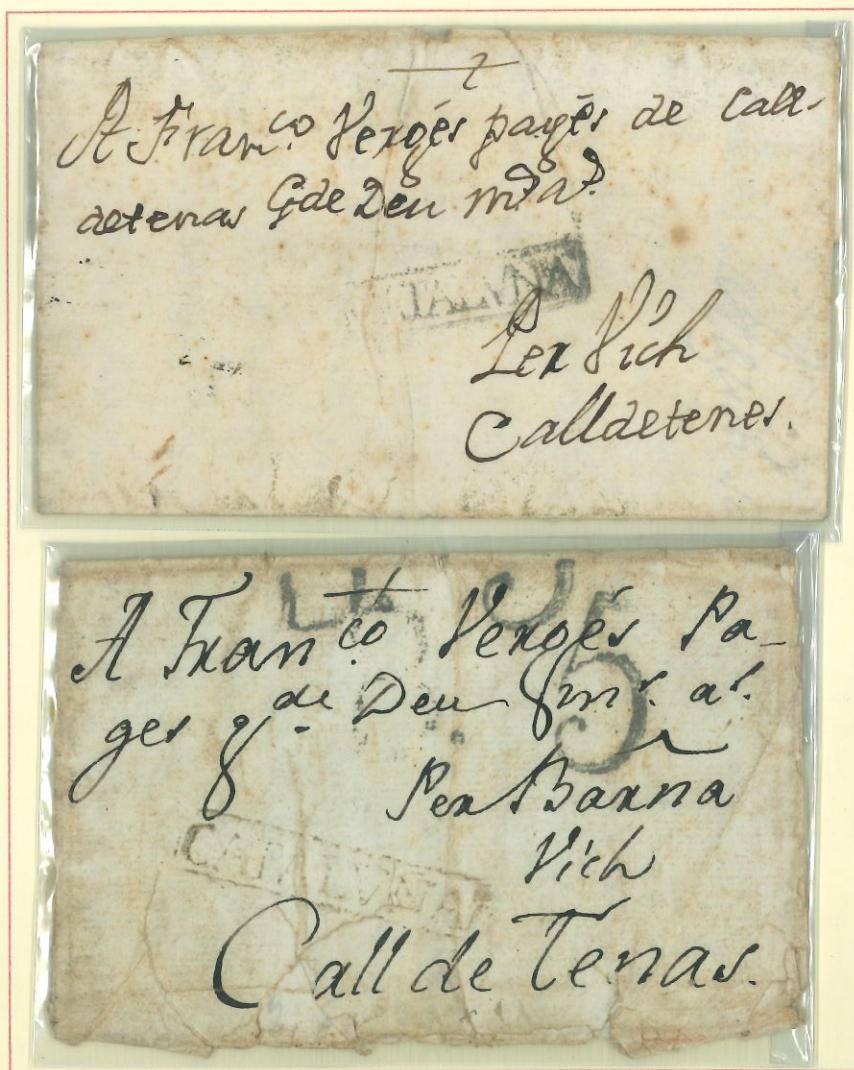 A Fran.co Vergés pagés de Call-
detenas G.de Deu m.s a.s
Per Vich
Calldetenes.
A Fran.co Vergés Pa-
ges g.de Deu m.s a.s
5
Per Barña
Vich
Call de Tenas.